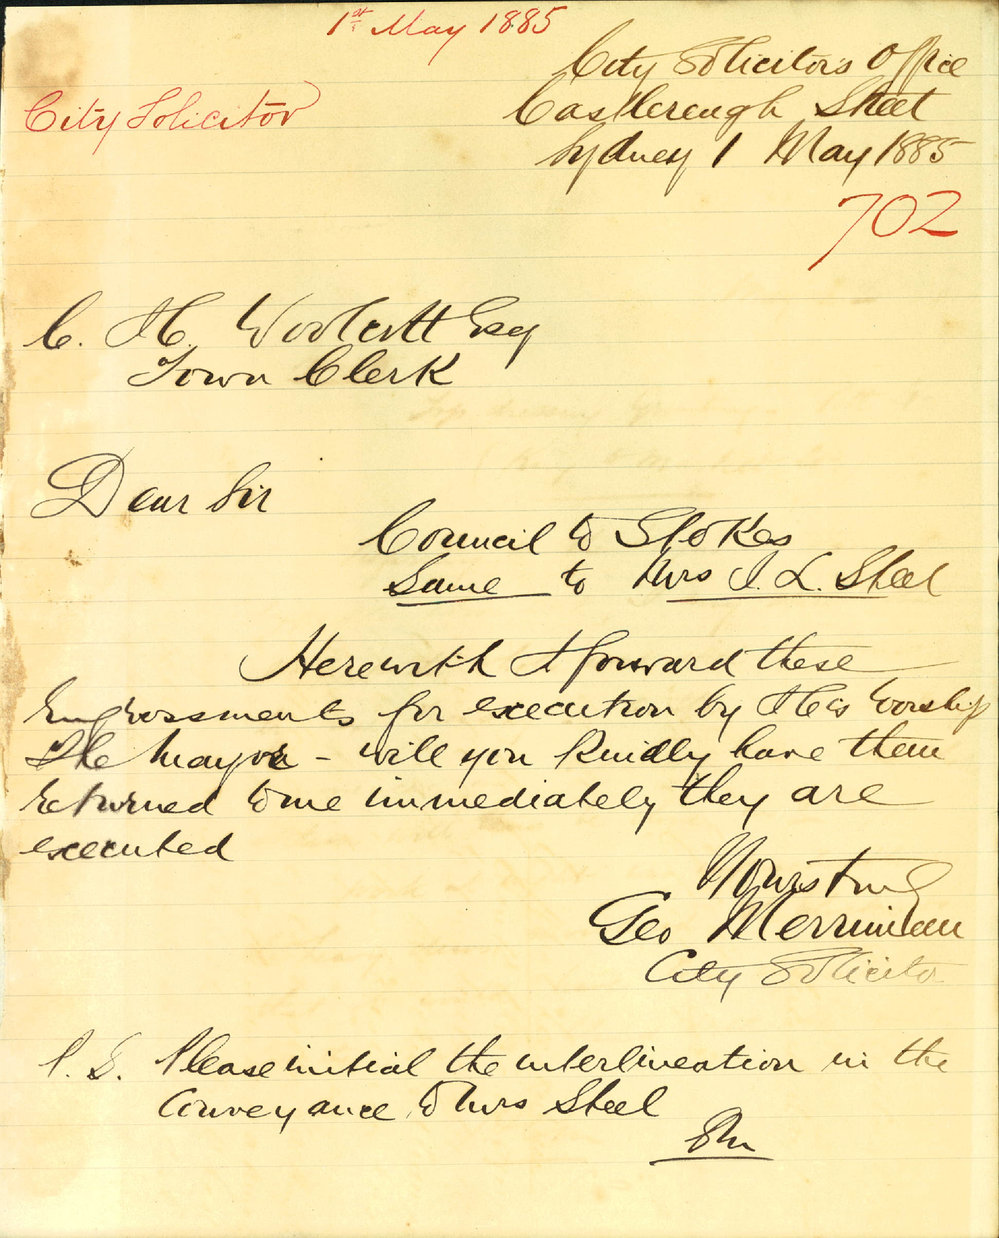 1st May 1885
City Solicitor
City Solicitors Office
Castlereagh Street
Sydney 1 May 1885
702
C. H. Woolcott Esq
Town Clerk
Dear Sir
Council to Stokes
Same to Mrs J. L. Steel
Herewith I forward these
Engrossments for execution by His Worship
The Mayor - will you kindly have them
returned to me immediately they are
executed
Yours truly
Geo Merriman
City Solicitor
P.S. Please initial the interlineation in the
Conveyance to Mrs Steel
GM